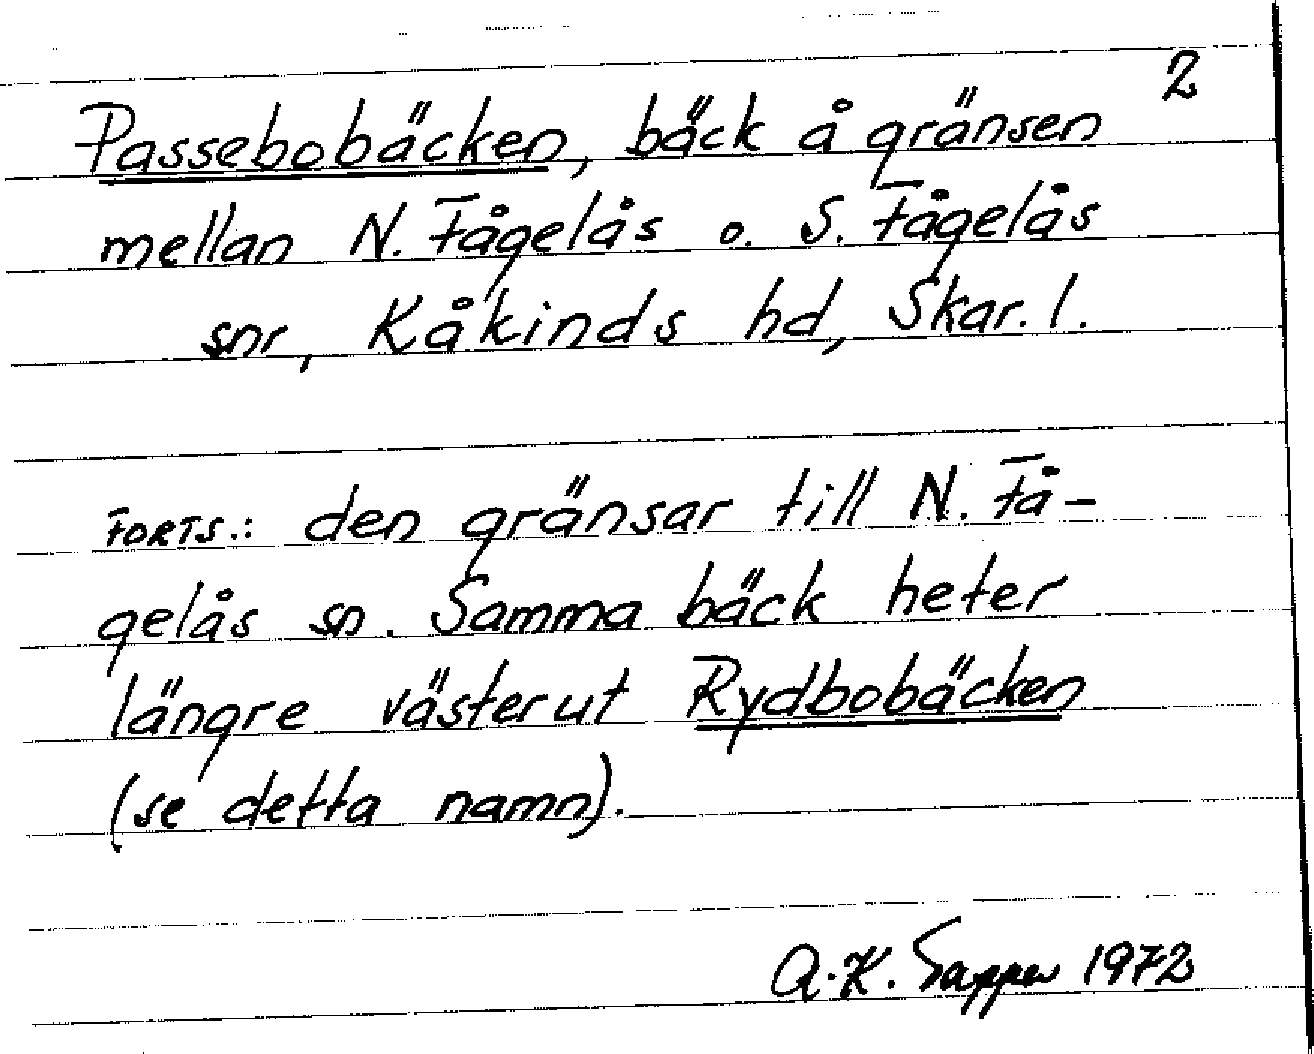 2
Passebobäcken, bäck å gränsen
mellan N. Fågelås o. S. Fågelås
snr, Kåkinds hd, Skar. l.
FORTS.: den gränsar till N. Få-
gelås sn. Samma bäck heter
längre västerut Rydbobäcken
(se detta namn).
A.K. 1972